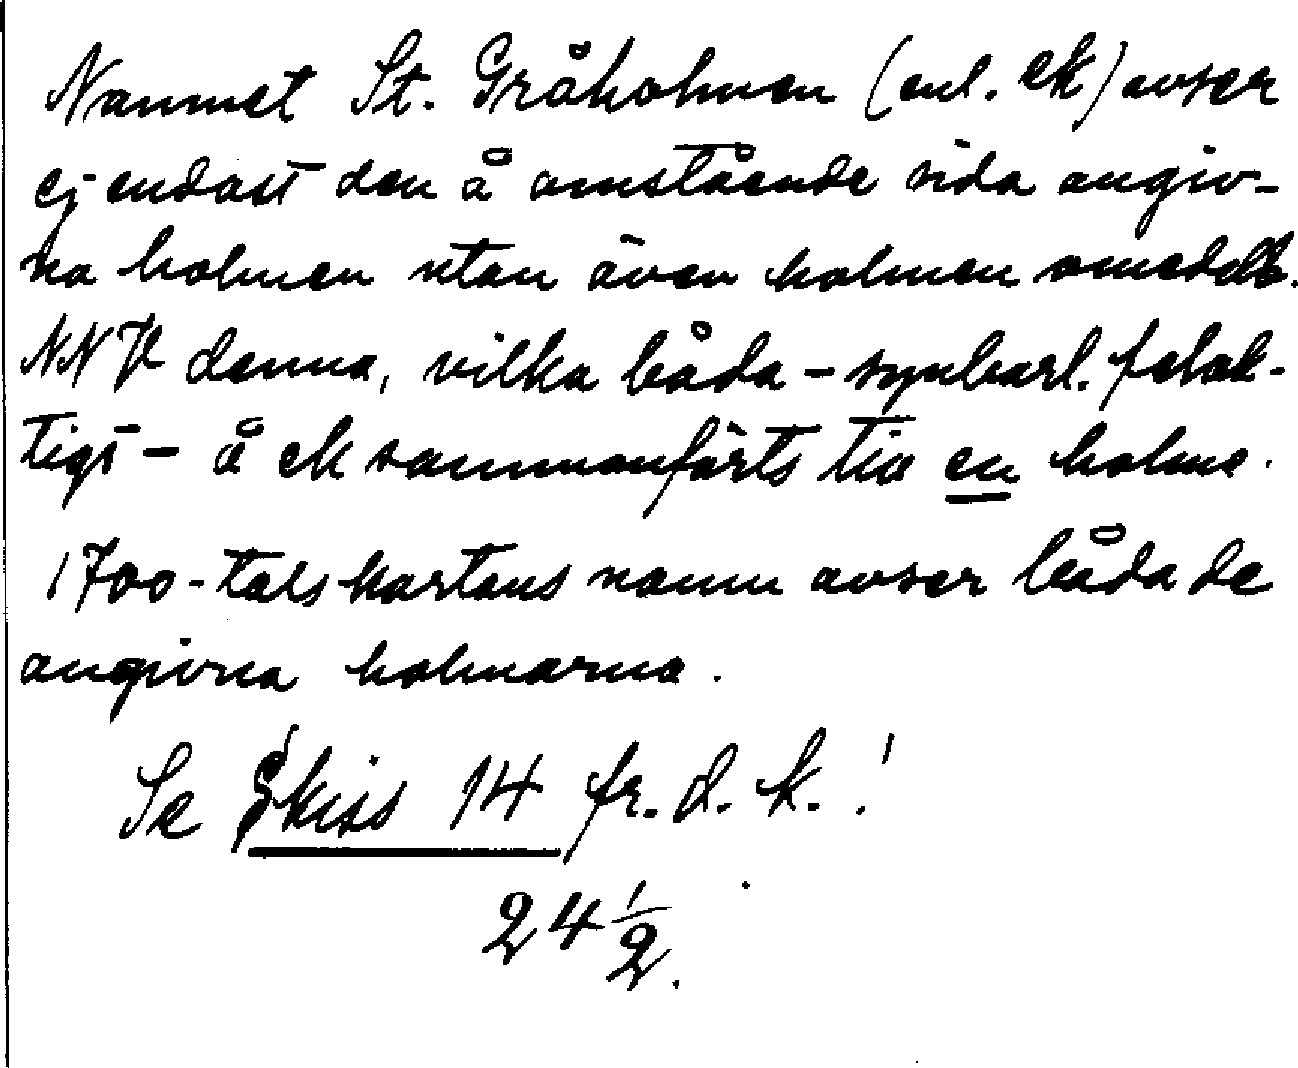 Namnet St. Gråholmen (enl. ek) avser
ej endast den å omstående sida angiv-
na holmen utan även holmen omedelb.
NNV denna, vilka båda - synbarl. felak-
tigt - å ek sammanförts till en holme.
1700-talskartans namn avser båda de
angivna holmarna.
Se Skiss 14 fr. d. k. !
24 1/2.